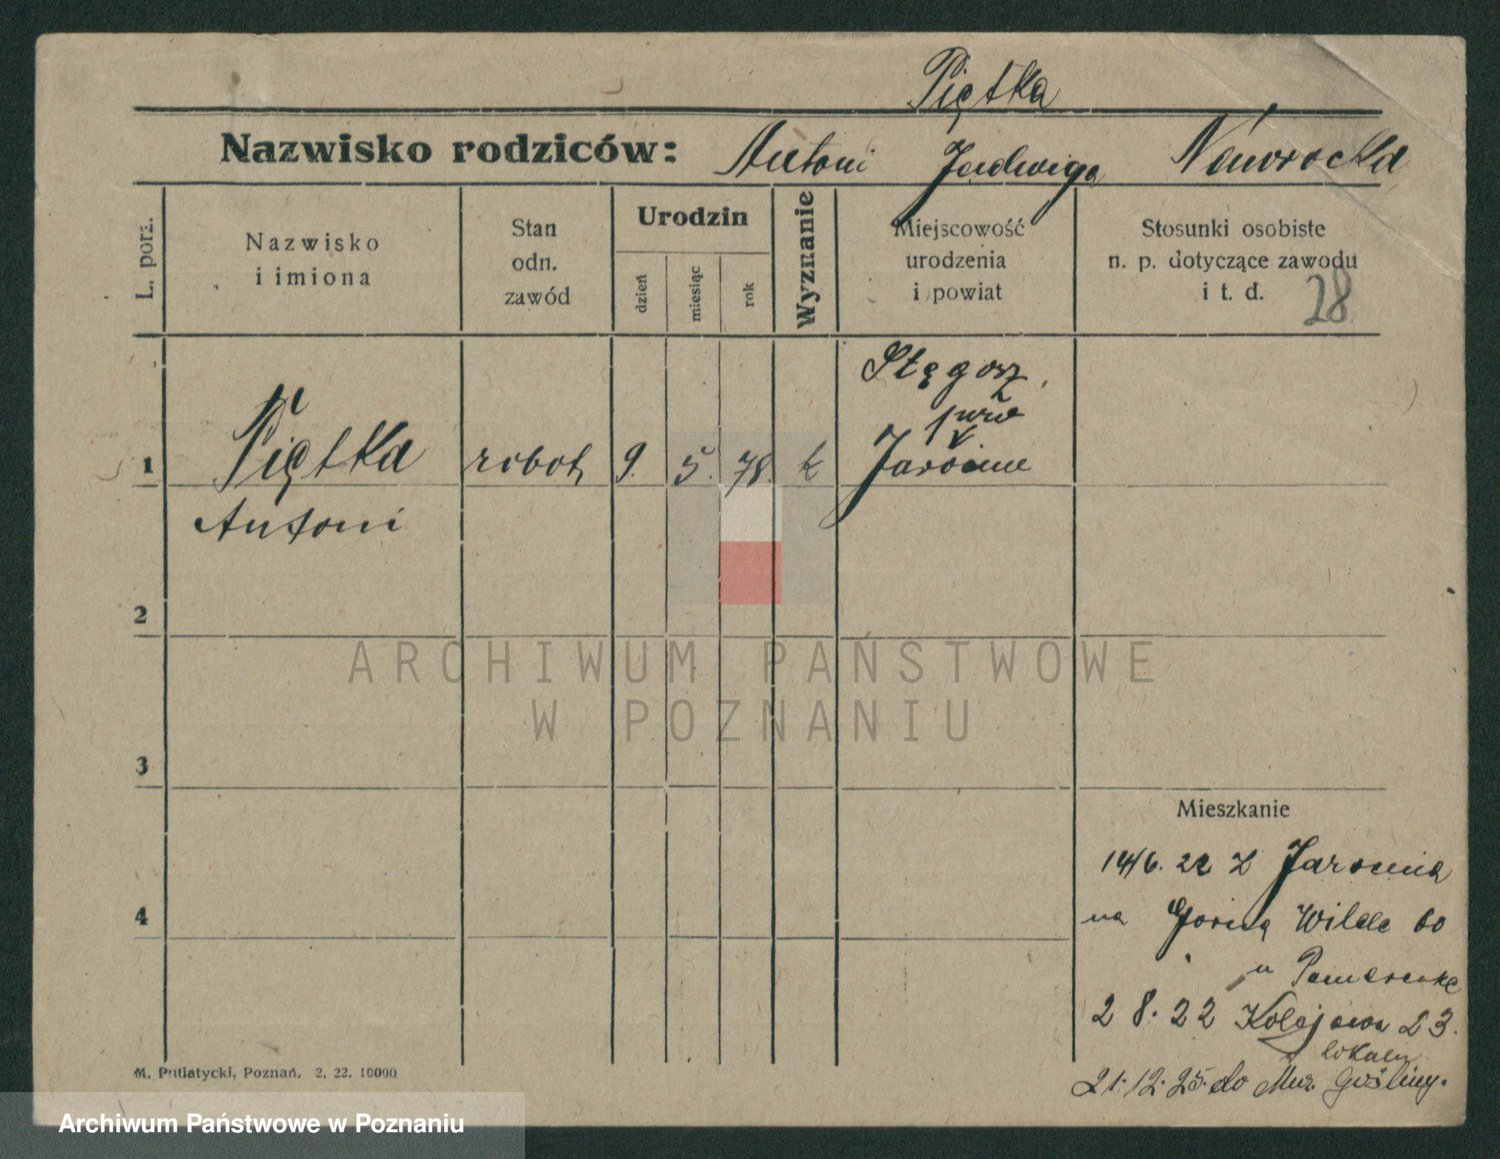 Piętka
Nazwisko rodziców: Antoni Jadwiga Nawrocka
L. porz.
Nazwisko
i imiona
Stan
odn.
zawód
Urodzin
dzień
miesiąc
rok
Wyznanie
Miejscowość
urodzenia
i powiat
Stosunki osobiste
n. p. dotyczące zawodu
i t. d.
28
1
Piętka
Antoni
robot.
9. 5. 78. k
Stęgosz
Jarocin
2
3
4
Mieszkanie
14/6. 22 z Jarocina
na Górną Wildę 60
u
2 8. 22 Kolejowa 23.
lokator
21.12.25. do Mur. Gośliny.
M. Putiatycki, Poznań. 2. 22. 10000
ARCHIWUM PAŃSTWOWE
W POZNANIU
Archiwum Państwowe w Poznaniu